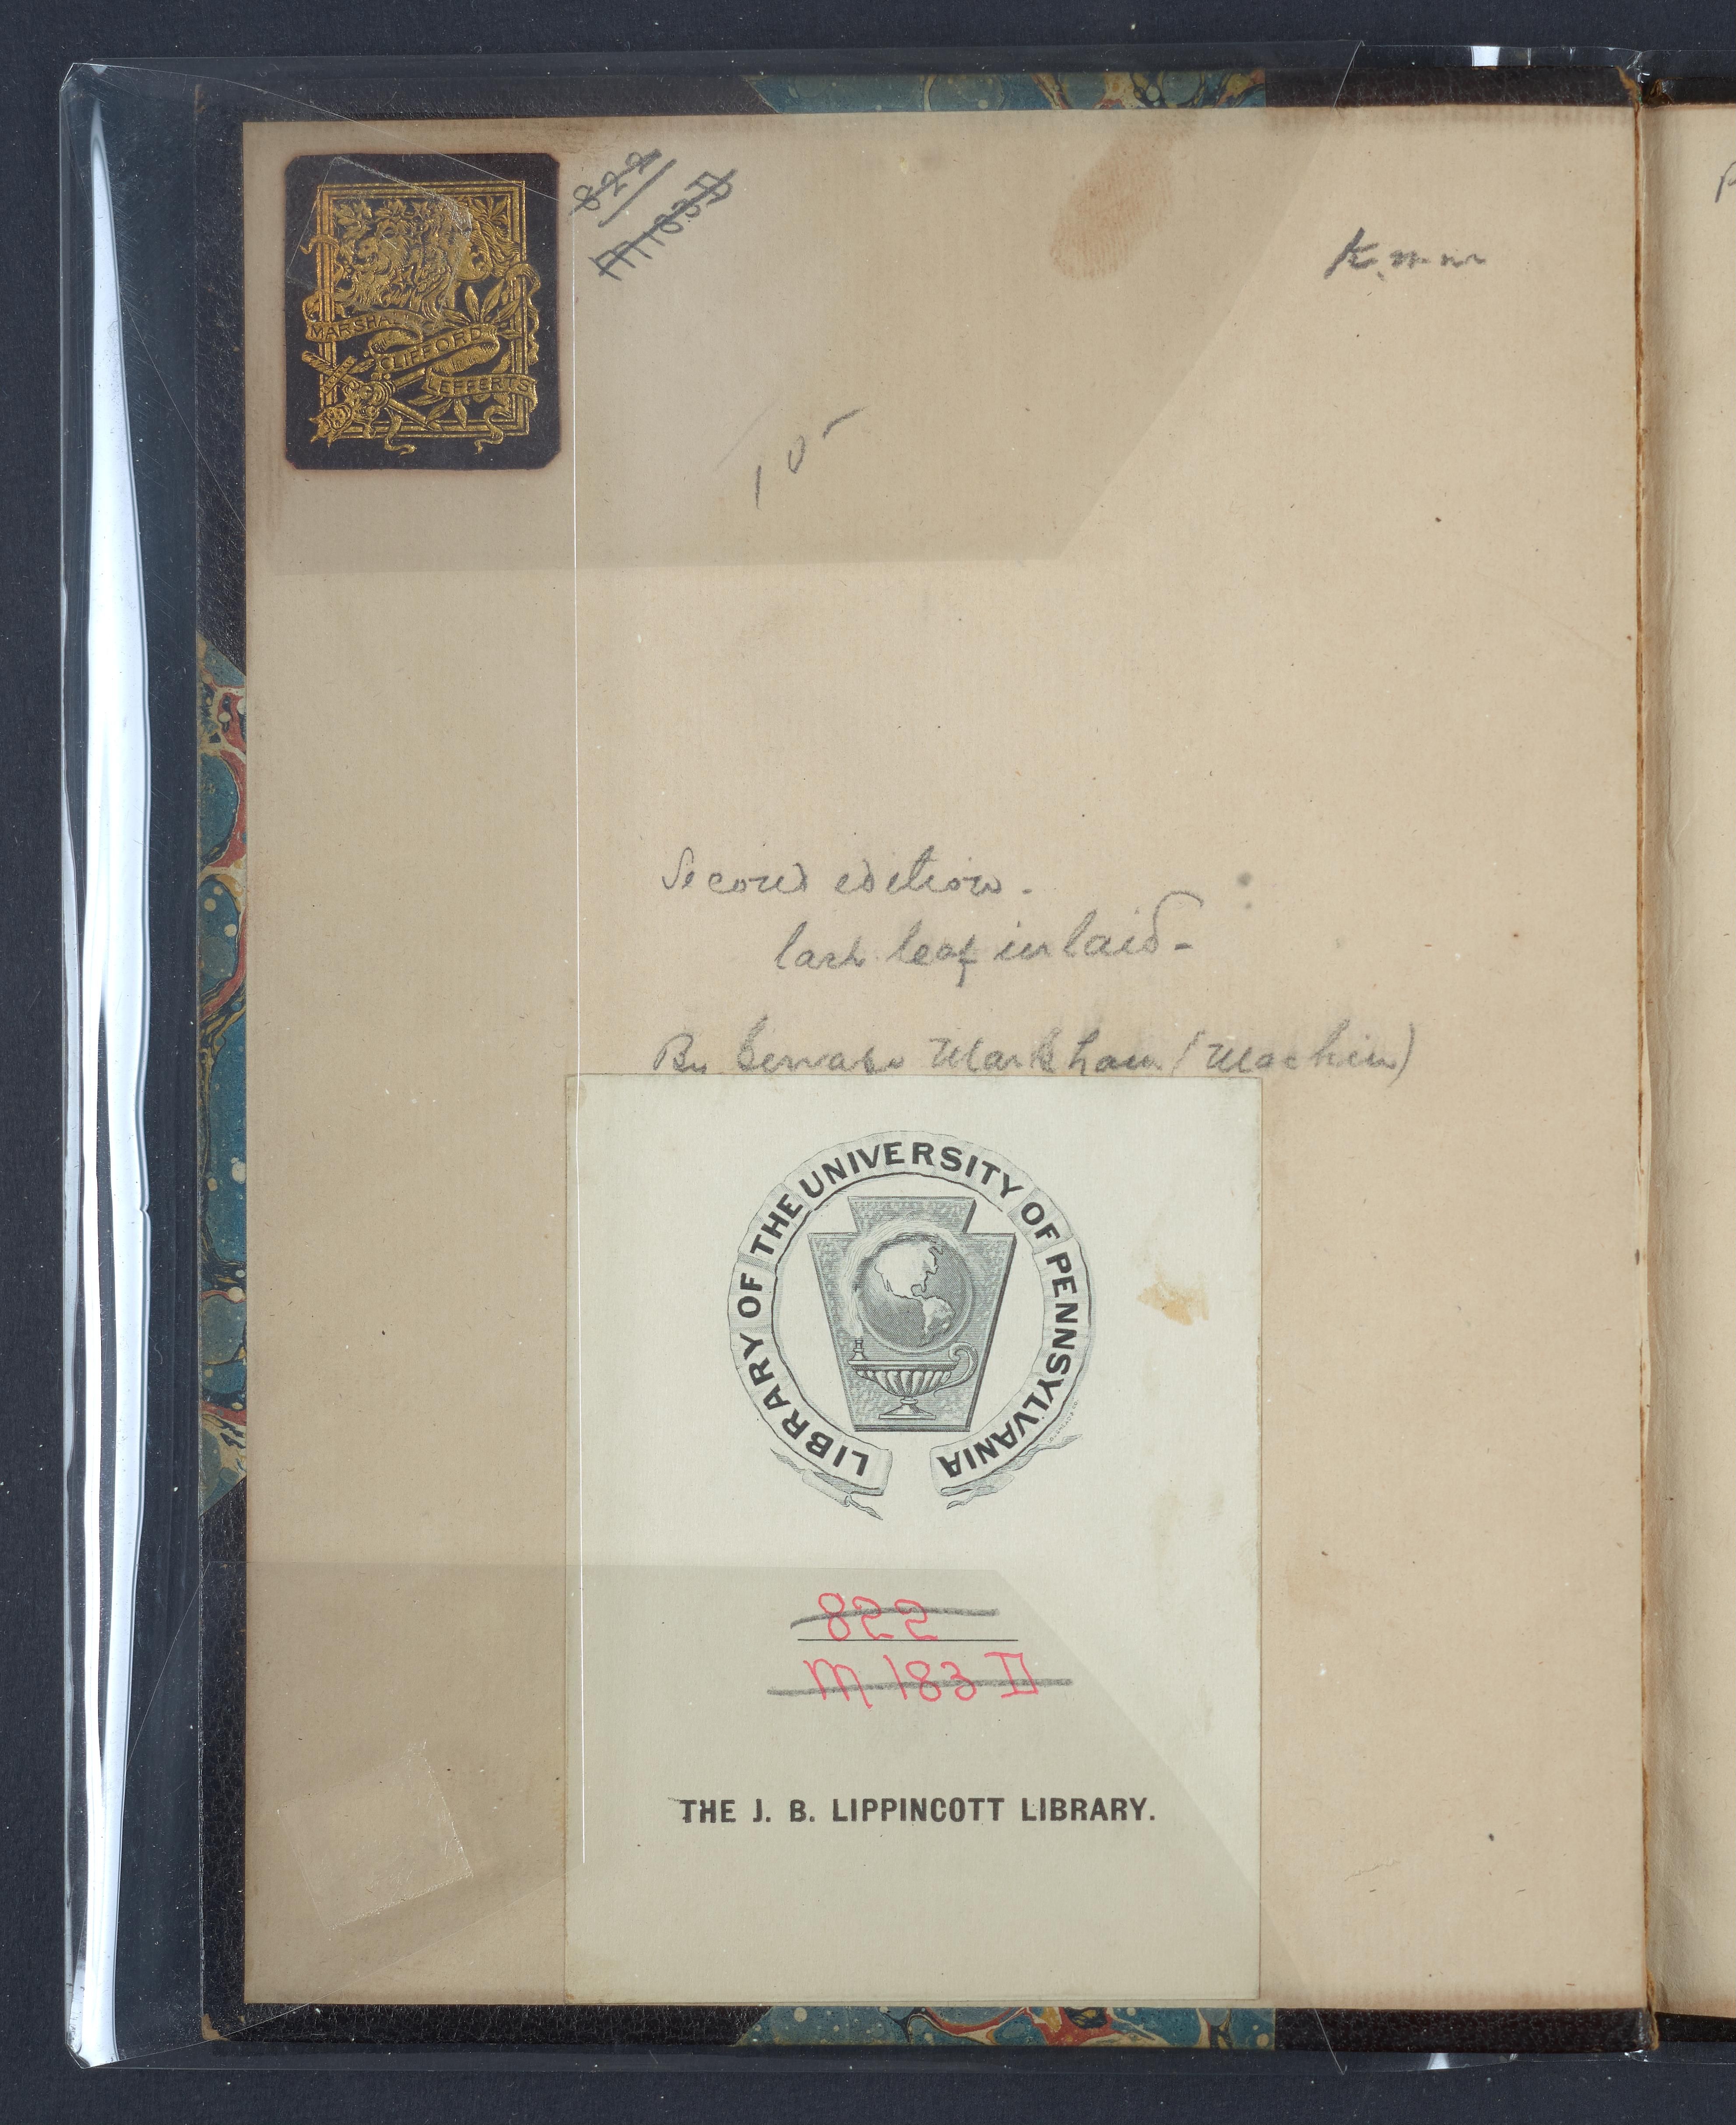 MARSHALL
CLIFFORD
LEFFERTS
822/
M183D
10-
Second edition.
last leaf inlaid-
By Gervase Markham (Machin)
LIBRARY OF THE UNIVERSITY OF PENNSYLVANIA
822
M 183 D
THE J. B. LIPPINCOTT LIBRARY.